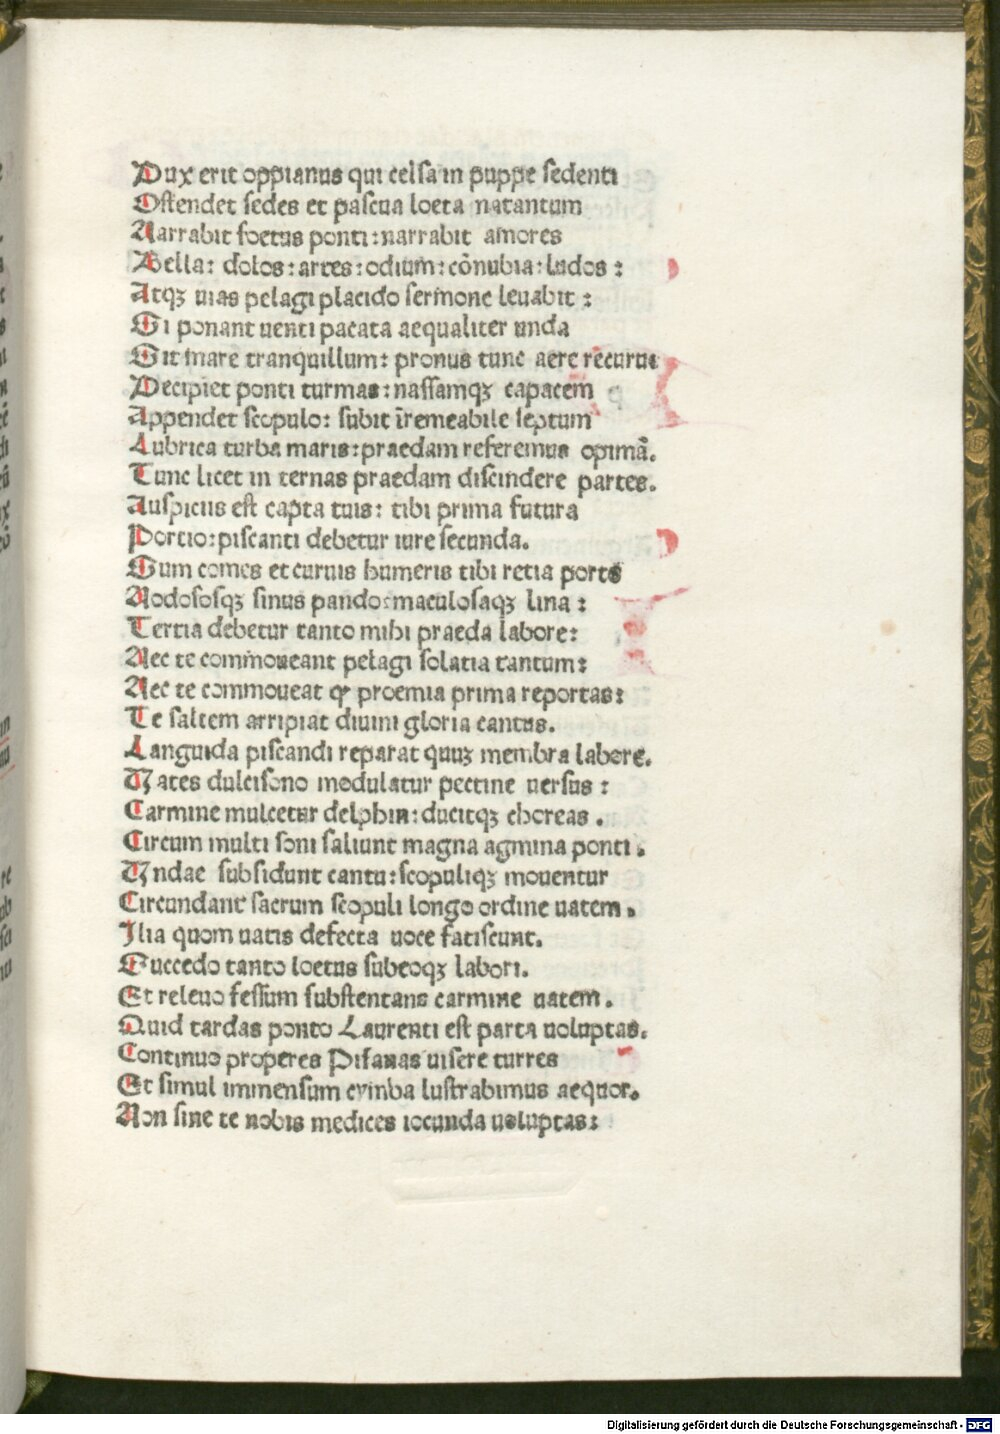 Dux erit oppianus qui celsa in puppe sedenti
Ostendet sedes et pascua loeta natantum
Narrabit foetus ponti: narrabit amores
Bella: dolos: artes: odium: cōnubia: ludos:
Atqꝫ uias pelagi placido sermone leuabit:
Si ponant uenti pacata aequaliter unda
Sit mare tranquillum: pronus tunc aere recuruo
Decipiet ponti turmas: nassamqꝫ capacem
Appendet scopulo: subit īremeabile septum
Lubrica turba maris: praedam referemus opimā.
Tunc licet in ternas praedam discindere partes.
Auspiciis est capta tuis: tibi prima futura
Portio: piscanti debetur iure secunda.
Sum comes et curuis humeris tibi retia porto
Nodososqꝫ sinus pando: maculosaqꝫ lina:
Tertia debetur tanto mihi praeda labore:
Nec te commoueant pelagi solatia tantum:
Nec te commoueat ꝙ proemia prima reportas:
Te saltem arripiat diuini gloria cantus.
Languida piscandi reparat quuꝫ membra labore.
Vates dulcisono modulatur pectine uersus:
Carmine mulcetur delphin: ducitqꝫ choreas.
Circum multi soni saliunt magna agmina ponti.
Vndae subsidunt cantu: scopuliqꝫ mouentur
Circundant sacrum scopuli longo ordine uatem.
Ilia quom uatis defecta uoce fatiscunt.
Succedo tanto loetus subeoqꝫ labori.
Et releuo fessum substentans carmine uatem.
Quid tardas ponto Laurenti est parta uoluptas.
Continuo properes Pisanas uisere turres
Et simul immensum cymba lustrabimus aequor.
Non sine te nobis medices iocunda uoluptas:
Digitalisierung gefördert durch die Deutsche Forschungsgemeinschaft - DFG